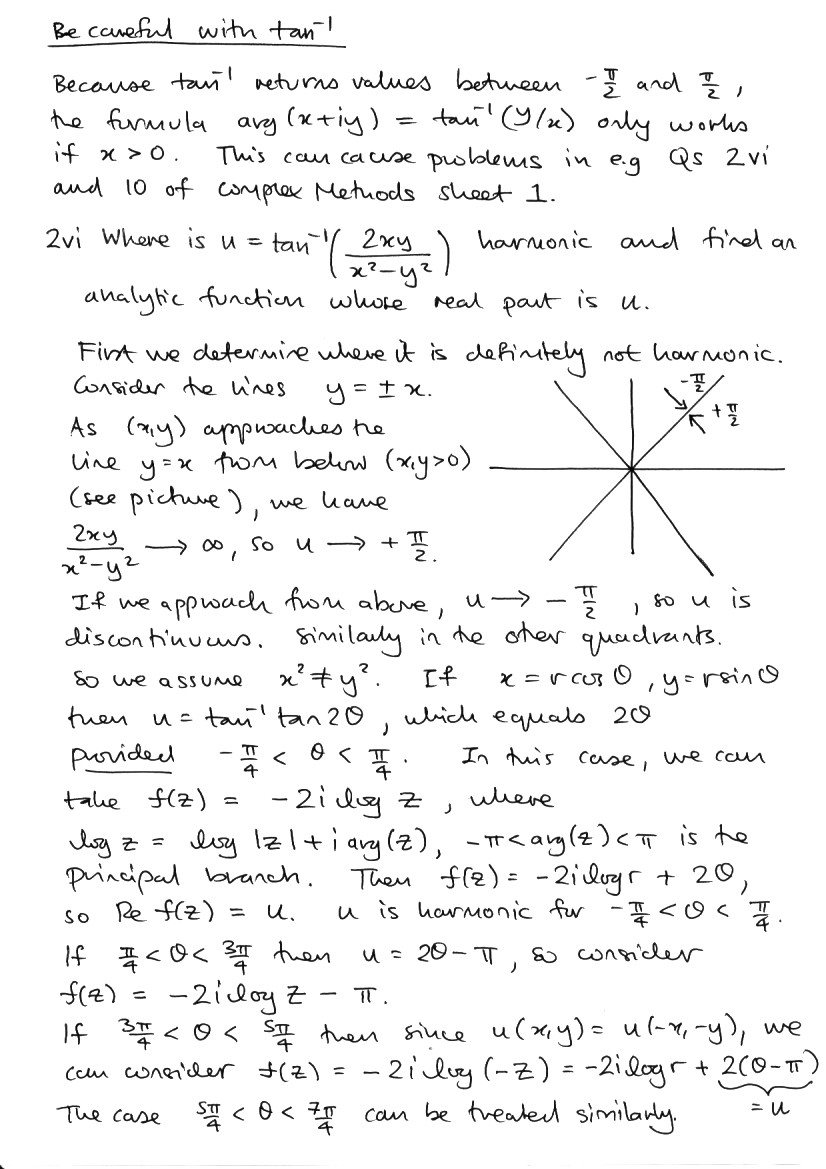 Be careful with tan⁻¹
Because tan⁻¹ returns values between -π/2 and π/2,
the formula arg(x+iy) = tan⁻¹(y/x) only works
if x > 0. This can cause problems in e.g Qs 2vi
and 10 of Complex Methods sheet 1.
2vi Where is u = tan⁻¹(2xy/(x²-y²)) harmonic and find an
analytic function whose real part is u.
First we determine where it is definitely not harmonic.
Consider the lines y = ± x.
-π/2
+π/2
As (x,y) approaches the
line y=x from below (x,y>0)
(see picture), we have
2xy/(x²-y²) → ∞, so u → +π/2.
If we approach from above, u → -π/2, so u is
discontinuous. Similarly in the other quadrants.
So we assume x² ≠ y². If x = r cos θ, y = r sin θ
then u = tan⁻¹ tan 2θ, which equals 2θ
provided -π/4 < θ < π/4. In this case, we can
take f(z) = -2i log z, where
log z = log |z| + i arg(z), -π < arg(z) < π is the
principal branch. Then f(z) = -2i log r + 2θ,
so Re f(z) = u. u is harmonic for -π/4 < θ < π/4.
If π/4 < θ < 3π/4 then u = 2θ - π, so consider
f(z) = -2i log z - π.
If 3π/4 < θ < 5π/4 then since u(x,y) = u(-x,-y), we
can consider f(z) = -2i log(-z) = -2i log r + 2(θ-π)
= u
The case 5π/4 < θ < 7π/4 can be treated similarly.